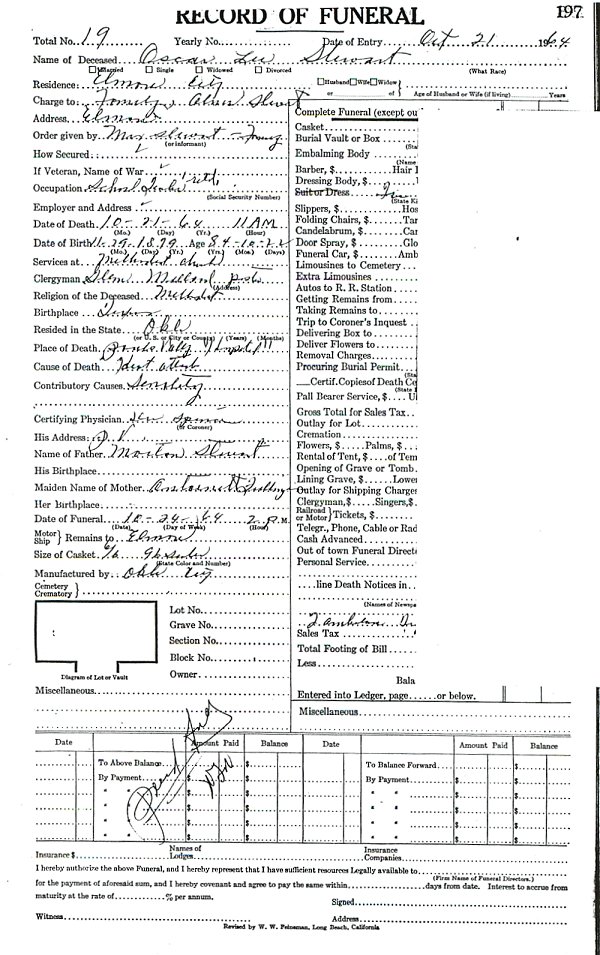 RECORD OF FUNERAL
197
Total No. 19 Yearly No. Date of Entry Oct 21 1964
Name of Deceased Oscar Lee Stewart
Married Single Widowed Divorced (What Race)
Residence: Elmore City Husband Wife Widow or of Age of Husband or Wife (if living) Years
Charge to: Family Stewart
Address Elmore
Order given by Max Stewart
(or informant)
How Secured:
If Veteran, Name of War
Occupation School
(Social Security Number)
Employer and Address
Date of Death 10-21-64 11 AM
(Mo.) (Day) (Yr.) (Hour)
Date of Birth 11-29-1879 Age 84-10-22
(Mo.) (Day) (Yr.) (Yrs.) (Mos.) (Days)
Services at Methodist church
Clergyman Glenn
(Address)
Religion of the Deceased Methodist
Birthplace
Resided in the State Okla
(or U. S. or City or County) (Years) (Months)
Place of Death Pauls Valley Hospital
Cause of Death Heart attack
Contributory Causes Senility
Certifying Physician Spencer
(or Coroner)
His Address P V
Name of Father Morton Stewart
His Birthplace
Maiden Name of Mother
Her Birthplace
Date of Funeral 10-24-64 2 P.M.
(Date) (Day of Week) (Hour)
Motor Ship Remains to Elmore
Size of Casket 6/6
(State Color and Number)
Manufactured by Okla
Cemetery Crematory
Lot No.
Grave No.
Section No.
Block No.
Owner
Diagram of Lot or Vault
Miscellaneous
Complete Funeral (except ou
Casket
Burial Vault or Box
(Sta
Embalming Body
(Name
Barber, $ Hair
Dressing Body, $
Suit or Dress
(State Ki
Slippers, $ Hos
Folding Chairs, $ Tar
Candelabrum, $ Car
Door Spray, $ Glo
Funeral Car, $ Amb
Limousines to Cemetery
Extra Limousines
Autos to R. R. Station
Getting Remains from
Taking Remains to
Trip to Coroner's Inquest
Delivering Box to
Deliver Flowers to
Removal Charges
Procuring Burial Permit
(Sta
Certif. Copies of Death Ce
(State
Pall Bearer Service, $ U
Gross Total for Sales Tax
Outlay for Lot
Cremation
Flowers, $ Palms, $
Rental of Tent, $ of Tem
Opening of Grave or Tomb
Lining Grave, $ Lowe
Outlay for Shipping Charges
Clergyman, $ Singers, $
Railroad or Motor Tickets, $
Telegr., Phone, Cable or Rad
Cash Advanced
Out of town Funeral Directo
Personal Service
line Death Notices in
(Names of Newspa
Sales Tax
Total Footing of Bill
Less
Bala
Entered into Ledger, page or below.
Miscellaneous
Date Amount Paid Balance Date Amount Paid Balance
To Above Balance $ $ To Balance Forward $
By Payment $ $ By Payment $ $
" " $ $ " " $ $
" " $ $ " " $ $
" " $ $ " " $ $
" " $ $ " " $ $
Insurance $ Names of Lodges Insurance Companies
I hereby authorize the above Funeral, and I hereby represent that I have sufficient resources Legally available to
(Firm Name of Funeral Directors.)
for the payment of aforesaid sum, and I hereby covenant and agree to pay the same within days from date. Interest to accrue from
maturity at the rate of % per annum. Signed
Witness Address
Revised by W. W. Feineman, Long Beach, California